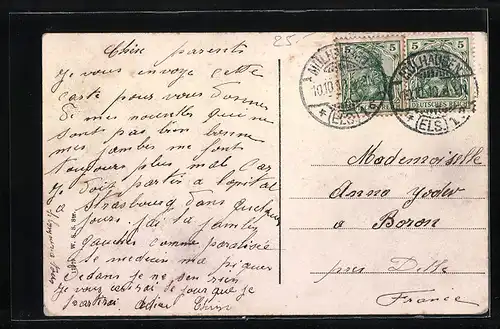 25.-
Chère parents
Je vous envoye cette
carte pour vous donner
mes nouvelles qui ne
sont pas bien bonne
mes jambes me font
toujours plus mal Car
Je doit partir a lopital
a Strasbourg dans quelques
jours. j'ai la jambe
gauches comme paralisée
le medecin ma piquer
dedans je ne sen rien
Je vous ecrirai le jour que je
partirai Adieu
5 5
DEUTSCHES REICH
MÜLHAUSEN
10.10
* (ELS.) 1
MÜLHAUSEN
* (ELS.) 1
Mademoiselle
Anna Yoder
a Boron
près Delle
France